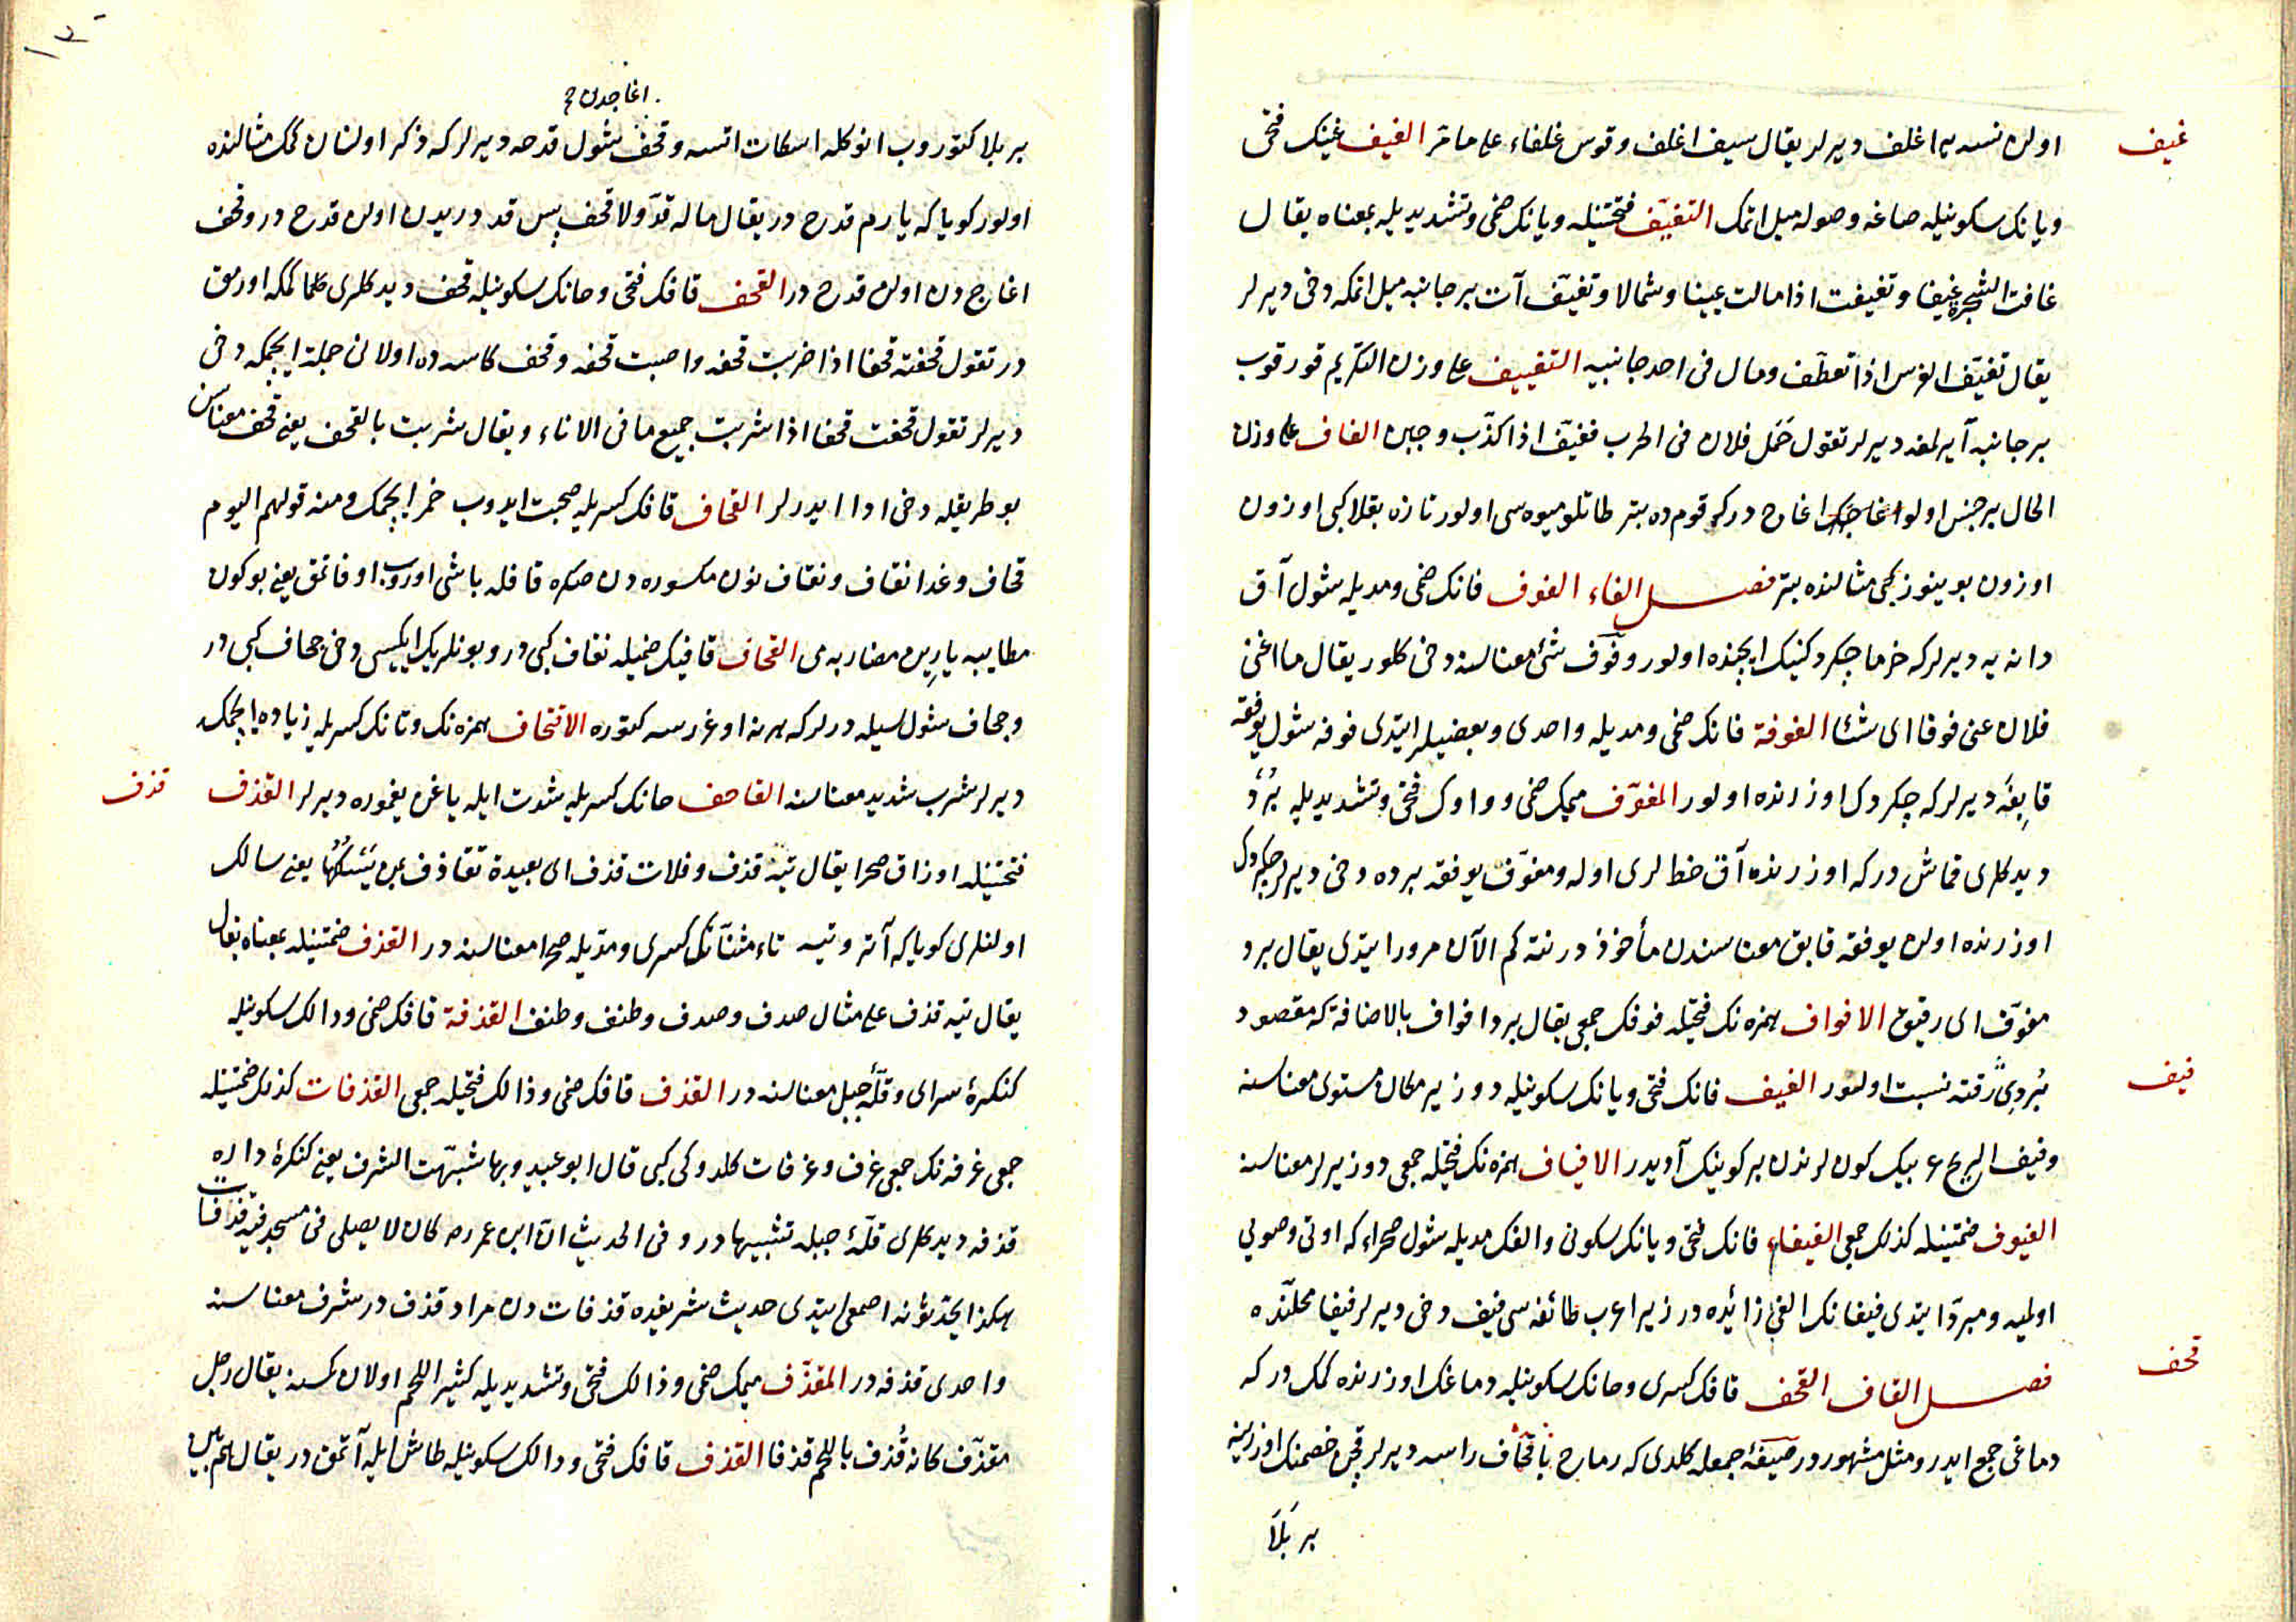 غيف
اولن نسنه يه اغلف ديرلر يقال سيف اغلف وقوس غلفاء على ما مر الغيف غينك فتحى
ويانك سكونيله صاغه وصوله ميل اتمك التغيّف فتحتينله ويانك ضمى وتشديديله بمعناه يقال
غافت الشجرة غيفا وتغيفت اذا مالت يمينا وشمالا وتغيّف آت بر جانبه ميل اتمكه دخى ديرلر
يقال تغيّف الفرس اذا تعطّف ومال فى احد جانبيه التغييف على وزن التكريم قورقوب
بر جانبه آيرلمغه ديرلر تقول حَمَل فلان فى الحرب فغيّف اذا كذّب وجبن الغاف على وزن
الحال بر جنس اولو اغاجدر كه قوم ده بتر طاتلو ميوه سى اولور تازه بقلا كبى اوزون
اوزون بوينوز كبى مثالنده بتر فصل الفاء الفوف فانك ضمى ومديله شول آق
دانه يه ديرلر كه خرما چكردكنك ايچنده اولور وفوف شئ معناسنه دخى كلور يقال ما اغنى
فلان عنى فوفا اى شئا الفوفة فانك ضمى ومديله واحدى وبعضيلر ايتدى فوفه شول يوفقه
قابغه ديرلر كه چكردك اوزرنده اولور المفوّف ميمك ضمى وواوك فتحى وتشديديله بُردُ
ديدكلرى قماش دركه اوزرنده آق خطلرى اوله ومفوّف يوفقه برده دخى ديرلر چكردك
اوزرنده اولن يوفقه قابق معناسندن مأخوذدر نته كم الآن مرور ايتدى يقال برد
مفوّف اى رقيق الافواف همزه نك فتحيله فوفك جمعى يقال برد افواف بالاضافة كه مقصود
بُردِىٌ رقته نسبت اولنور الفيف فانك فتحى ويانك سكونيله دوز ير مكان مستوى معناسنه
فيف
وفيف الريح عربك كونلرندن بر كونك آديدر الافياف همزه نك فتحيله جمعى دوز يرلر معناسنه
الفيوف ضمتينله كذلك جمعى الفيفاء فانك فتحى ويانك سكونى والفك مديله شول صحراء كه اوتى وصويى
اولميه ومبرد ايتدى فيفانك الفى زائده در زيرا عرب طائفه سى فيف دخى ديرلر فيفا محلنده
فصل القاف القحف قافك كسرى وحانك سكونيله دماغك اوزرنده كمك دركه
قحف
دماغى جمع ايدر ومثل مشهوردر صيغۀ جمعله كلدى كه رماح باقحاف راسه ديرلر قچن خصمنك اوزرينه
بر بَلَا
اغاجدن
بر بلا كتوروب انوكله اسكات اتسه وقحف شول قدحه ديرلر كه ذكر اولنان كمك مثالنده
اولور كويا كه يارم قدح در يقال ماله قدّ ولا قحف پس قد دريدن اولن قدح در وقحف
اغاج دن اولن قدح در القحف قافك فتحى وحانك سكونيله قحف ديدكلرى كلما كمكه اورمق
در تقول قحفته قحفا اذا ضربت قحفه واصبت قحفه وقحف كاسه ده اولانى جملة ايچمكه دخى
ديرلر تقول قحفت قحفا اذا شربت جميع ما فى الاناء ويقال شربت بالقحف يعنى قحف معناسن
بو طريقيله دخى ادا ايدرلر القحاف قافك كسريله صحبت ايدوب خمر ايچمك ومنه قولهم اليوم
قحاف وغدا نقاف ونقاف نون مكسوره دن صكره قافله باشى اوروب اوفاتمق يعنى بو كون
مطايبه يارين مضاربه مى القحاف قافك ضميله نقاف كبى در وبونلرك ايكيسى دخى جحاف كبى در
وجحاف شول سيله درلر كه هرنه اوغرسه كتوره الاقتحاف همزه نك وتانك كسريله زياده ايچمك
ديرلر شرب شديد معناسنه القاحف حانك كسريله شدت ايله ياغن يغموره ديرلر القذف
قذف
فتحتينله اوزاق صحرا يقال تيه قذف وفلات قذف اى بعيدة تقاذف بمن يَسْلُكُهَا يعنى سالك
اولنلرى كويا كه آتر وتيه تاء مثناتك كسرى ومديله صحرا معناسنه در القذف ضمتينله بمعناه يقال
يقال تيه قذف على مثال صدف وصدف وطنف وطنف القذفة قافك ضمى ودالك سكونيله
كنكرۀ سراى وقلۀ جبل معناسنه در القذف قافك ضمى وذالك فتحيله جمعى القذفات كذلك ضمتينله
جمعى غرفه نك جمعى غرف وغرفات كلدوكى كبى قال ابو عبيد وبها شبهت الشرف يعنى كنكرۀ داره
قذفه ديدكلرى قلۀ جبله تشبيهادر وفى الحديث ان ابن عمر رضه كان لا يصلى فى مسجد فيه قذفات
هكذا يحدثونه اصمعى ايتدى حديث شريفده قذفات دن مراد قذف در شرف معناسنه
واحدى قذفه در المقذّف ميمك ضمى وذالك فتحى وتشديديله كثير اللحم اولان كمسنه يقال رجل
مقذّف كانه قُذف باللحم قذفا القذف قافك فتحى ودالك سكونيله طاش ايله آتمق در يقال هم بين